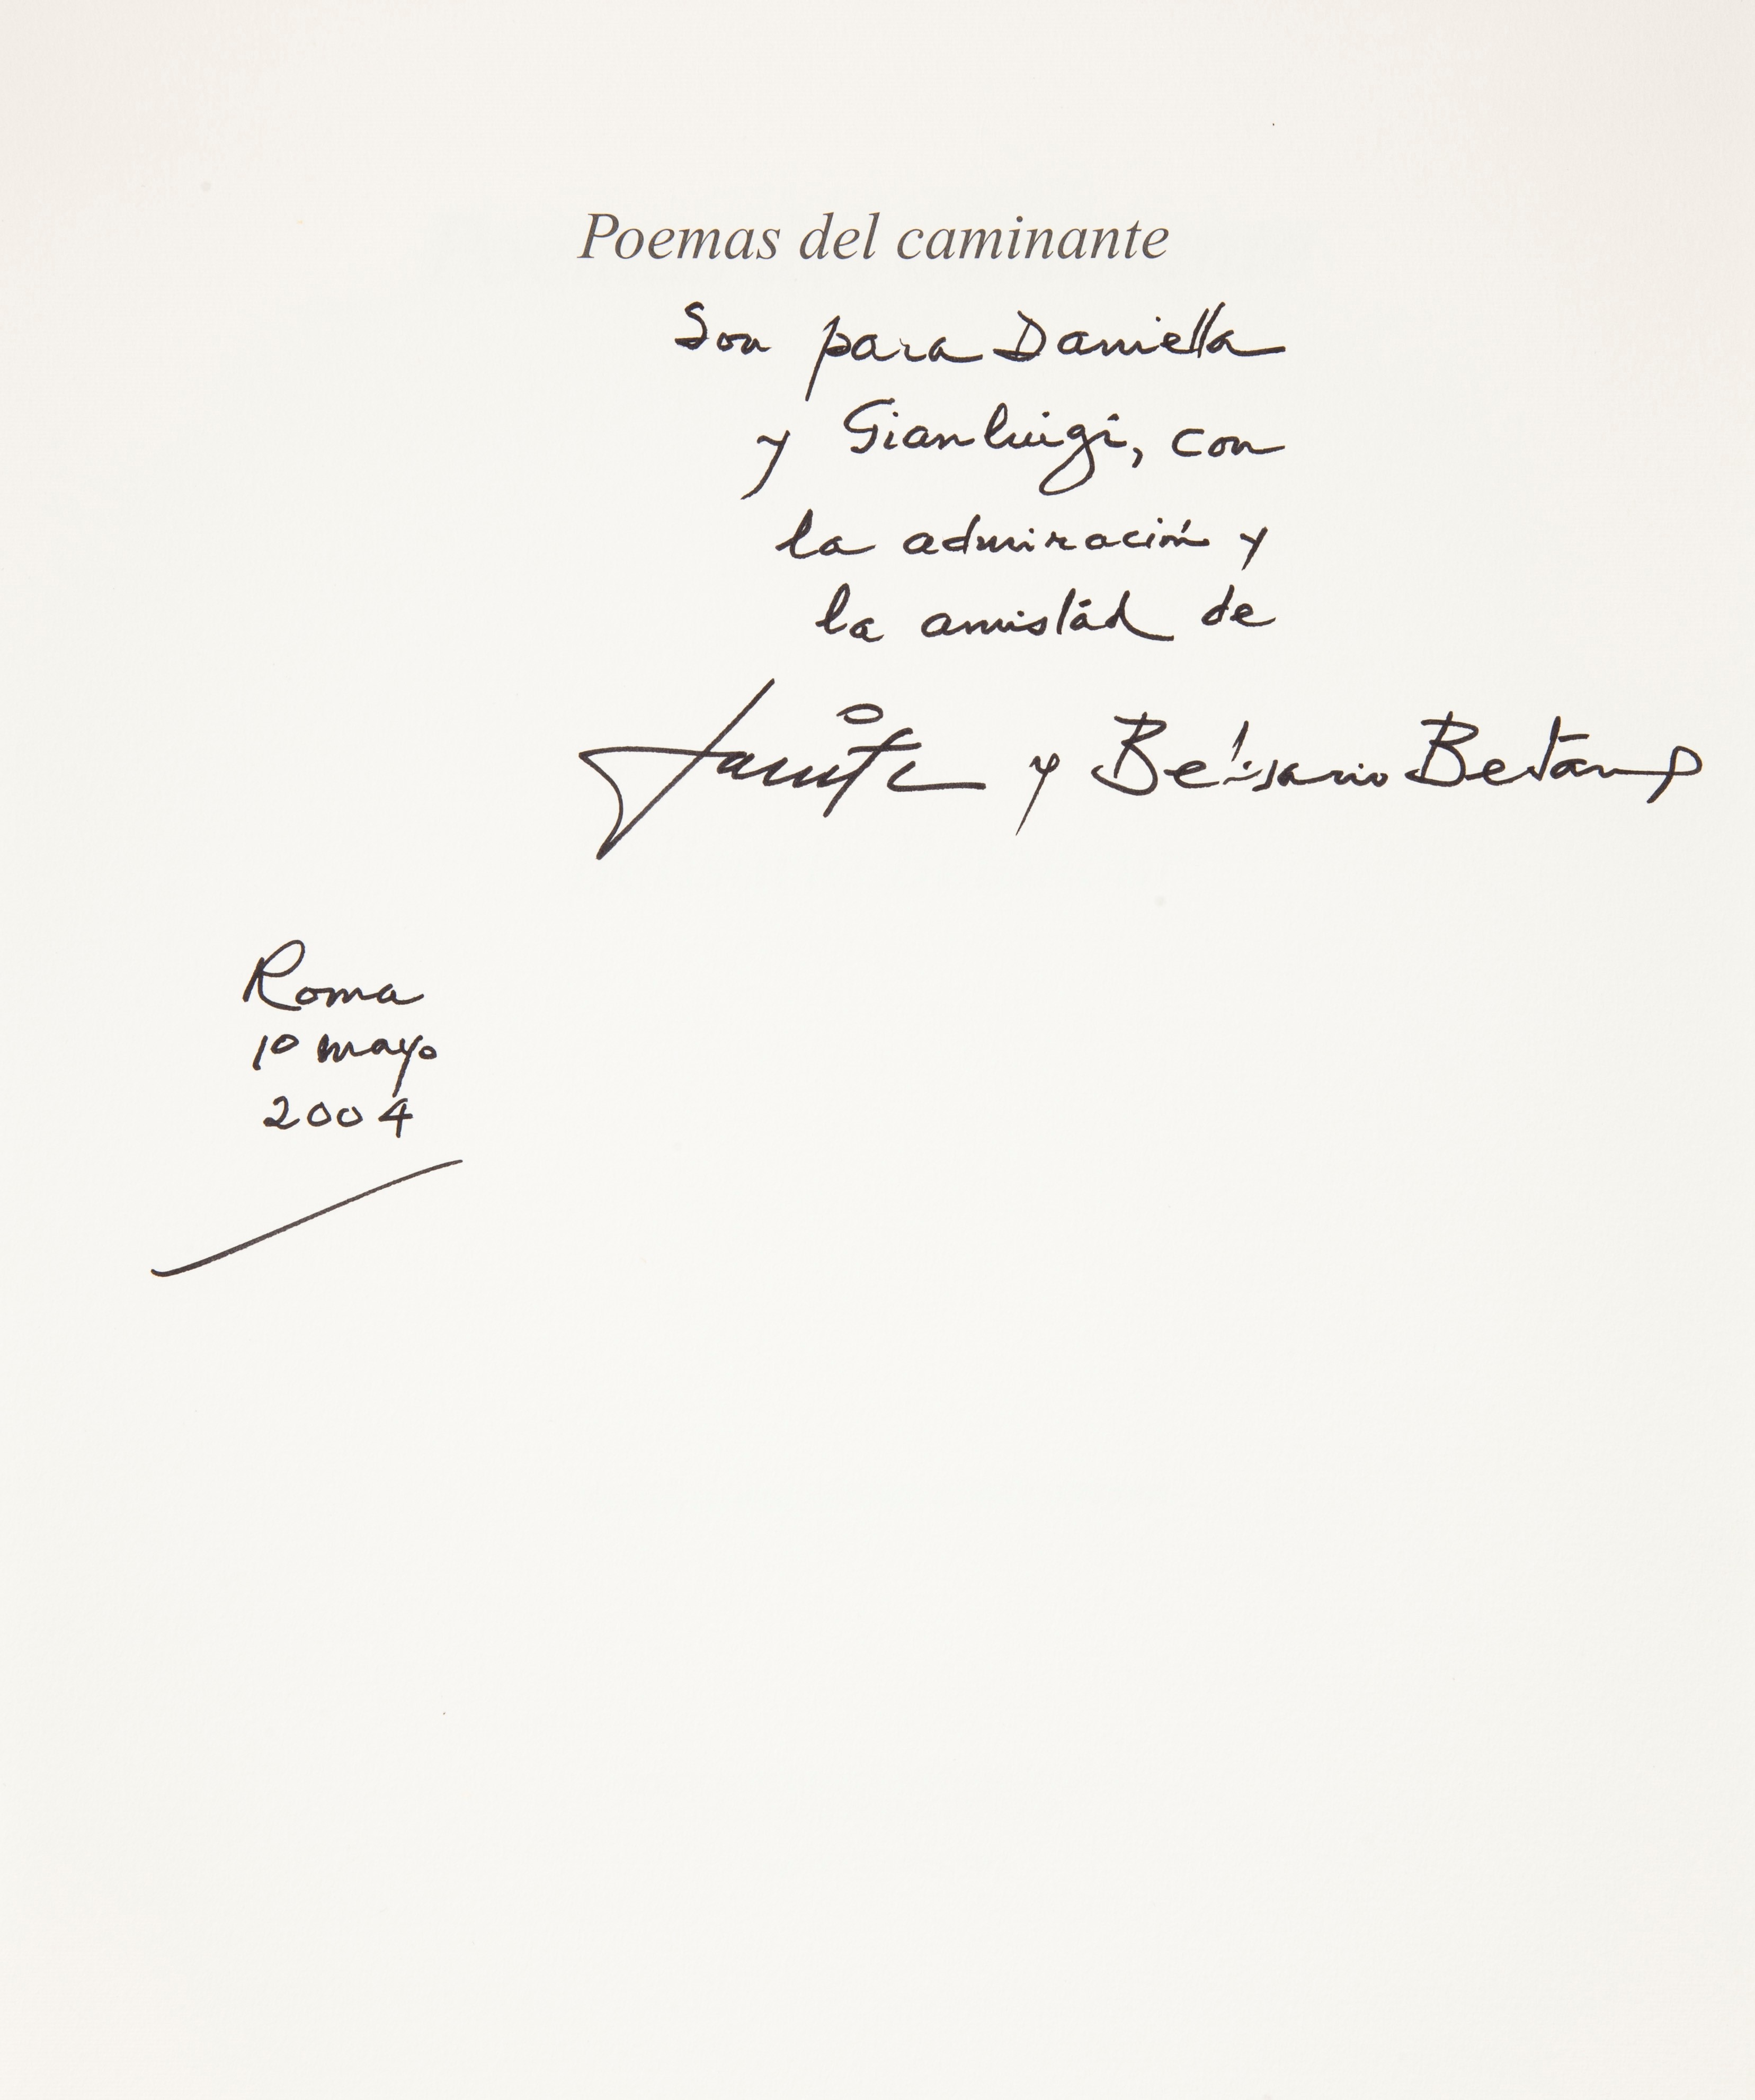 Poemas del caminante
Son para Daniella
y Gianluigi, con
la admiración y
la amistád de
y Belisario Betancur
Roma
10 mayo
2004